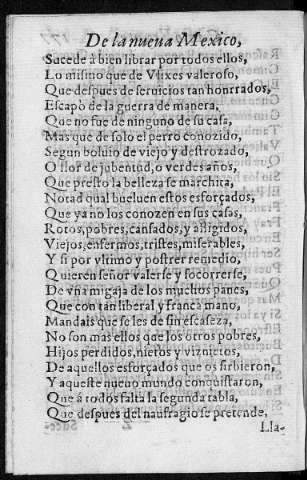 De la nueua Mexico,
Sucede à bien librar por todos ellos,
Lo mismo que de Vlixes valeroso,
Que despues de seruicios tan honrrados,
Escapò de la guerra de manera,
Que no fue de ninguno de su casa,
Mas que de solo el perro conozido,
Segun boluio de viejo y destrozado,
O flor de jubentud, o verdes años,
Que presto la belleza se marchita,
Notad qual bueluen estos esforçados,
Que ya no los conozen en sus casas,
Rotos, pobres, cansados, y afligidos,
Viejos, enfermos, tristes, miserables,
Y si por vltimo y postrer remedio,
Quieren señor valerse y socorrerse,
De vna migaja de los muchos panes,
Que con tan liberal y franca mano,
Mandais que se les de sin escaseza,
No son mas ellos que los otros pobres,
Hijos perdidos, nietos y viznietos,
De aquellos esforçados que os sirbieron,
Y aqueste nueuo mundo conquistaron,
Que à todos falta la segunda tabla,
Que despues del naufragio se pretende,
Lla-